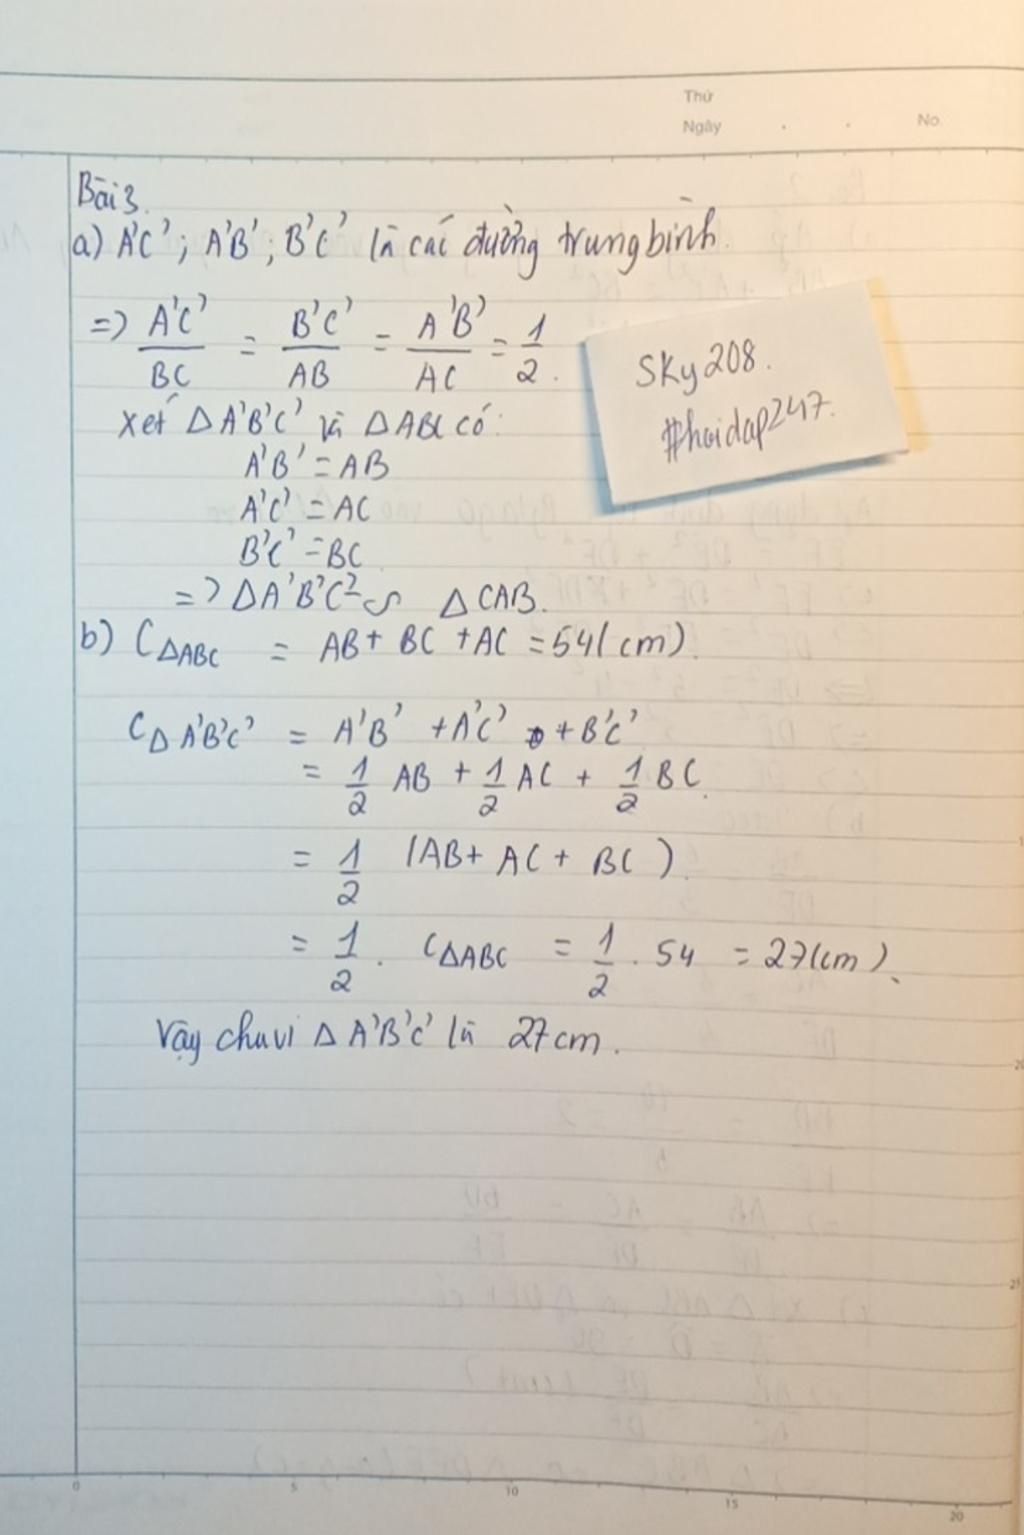 Thứ
Ngày . . No.
Bài 3.
a) A'C' ; A'B' ; B'C' là các đường trung bình.
=> A'C'/BC = B'C'/AB = A'B'/AC = 1/2.
Sky208.
#hoidap247.
xét Δ A'B'C' và Δ ABC có:
A'B' = AB
A'C' = AC
B'C' = BC
=> Δ A'B'C' ∽ Δ CAB.
b) C ΔABC = AB + BC + AC = 54 (cm).
C Δ A'B'C' = A'B' + A'C' + B'C'
= 1/2 AB + 1/2 AC + 1/2 BC.
= 1/2 (AB + AC + BC).
= 1/2 . C ΔABC = 1/2 . 54 = 27 (cm).
Vậy chu vi Δ A'B'C' là 27 cm.
0 5 10 15 20
20
25